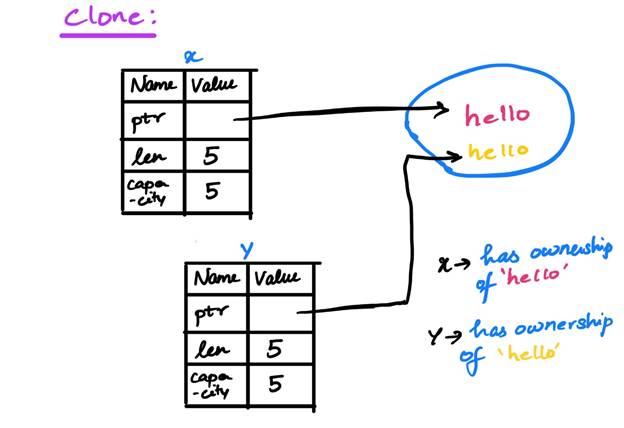 Clone:
x
Name Value
ptr
len 5
capa
-city 5
hello
hello
y
Name Value
ptr
len 5
capa
-city 5
x → has ownership
of 'hello'
y → has ownership
of 'hello'